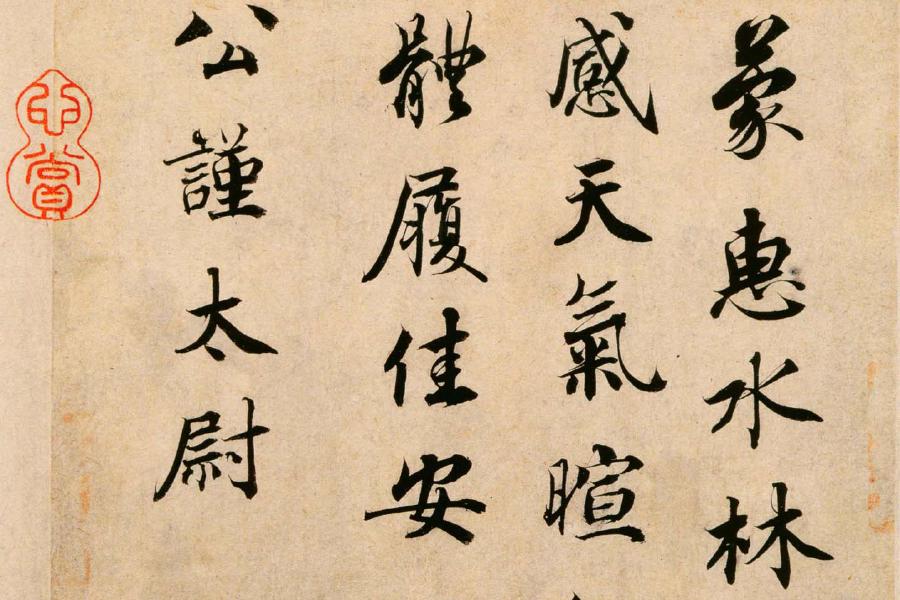 蒙惠水林
感天氣暄
體履佳安
公謹太尉
心賞